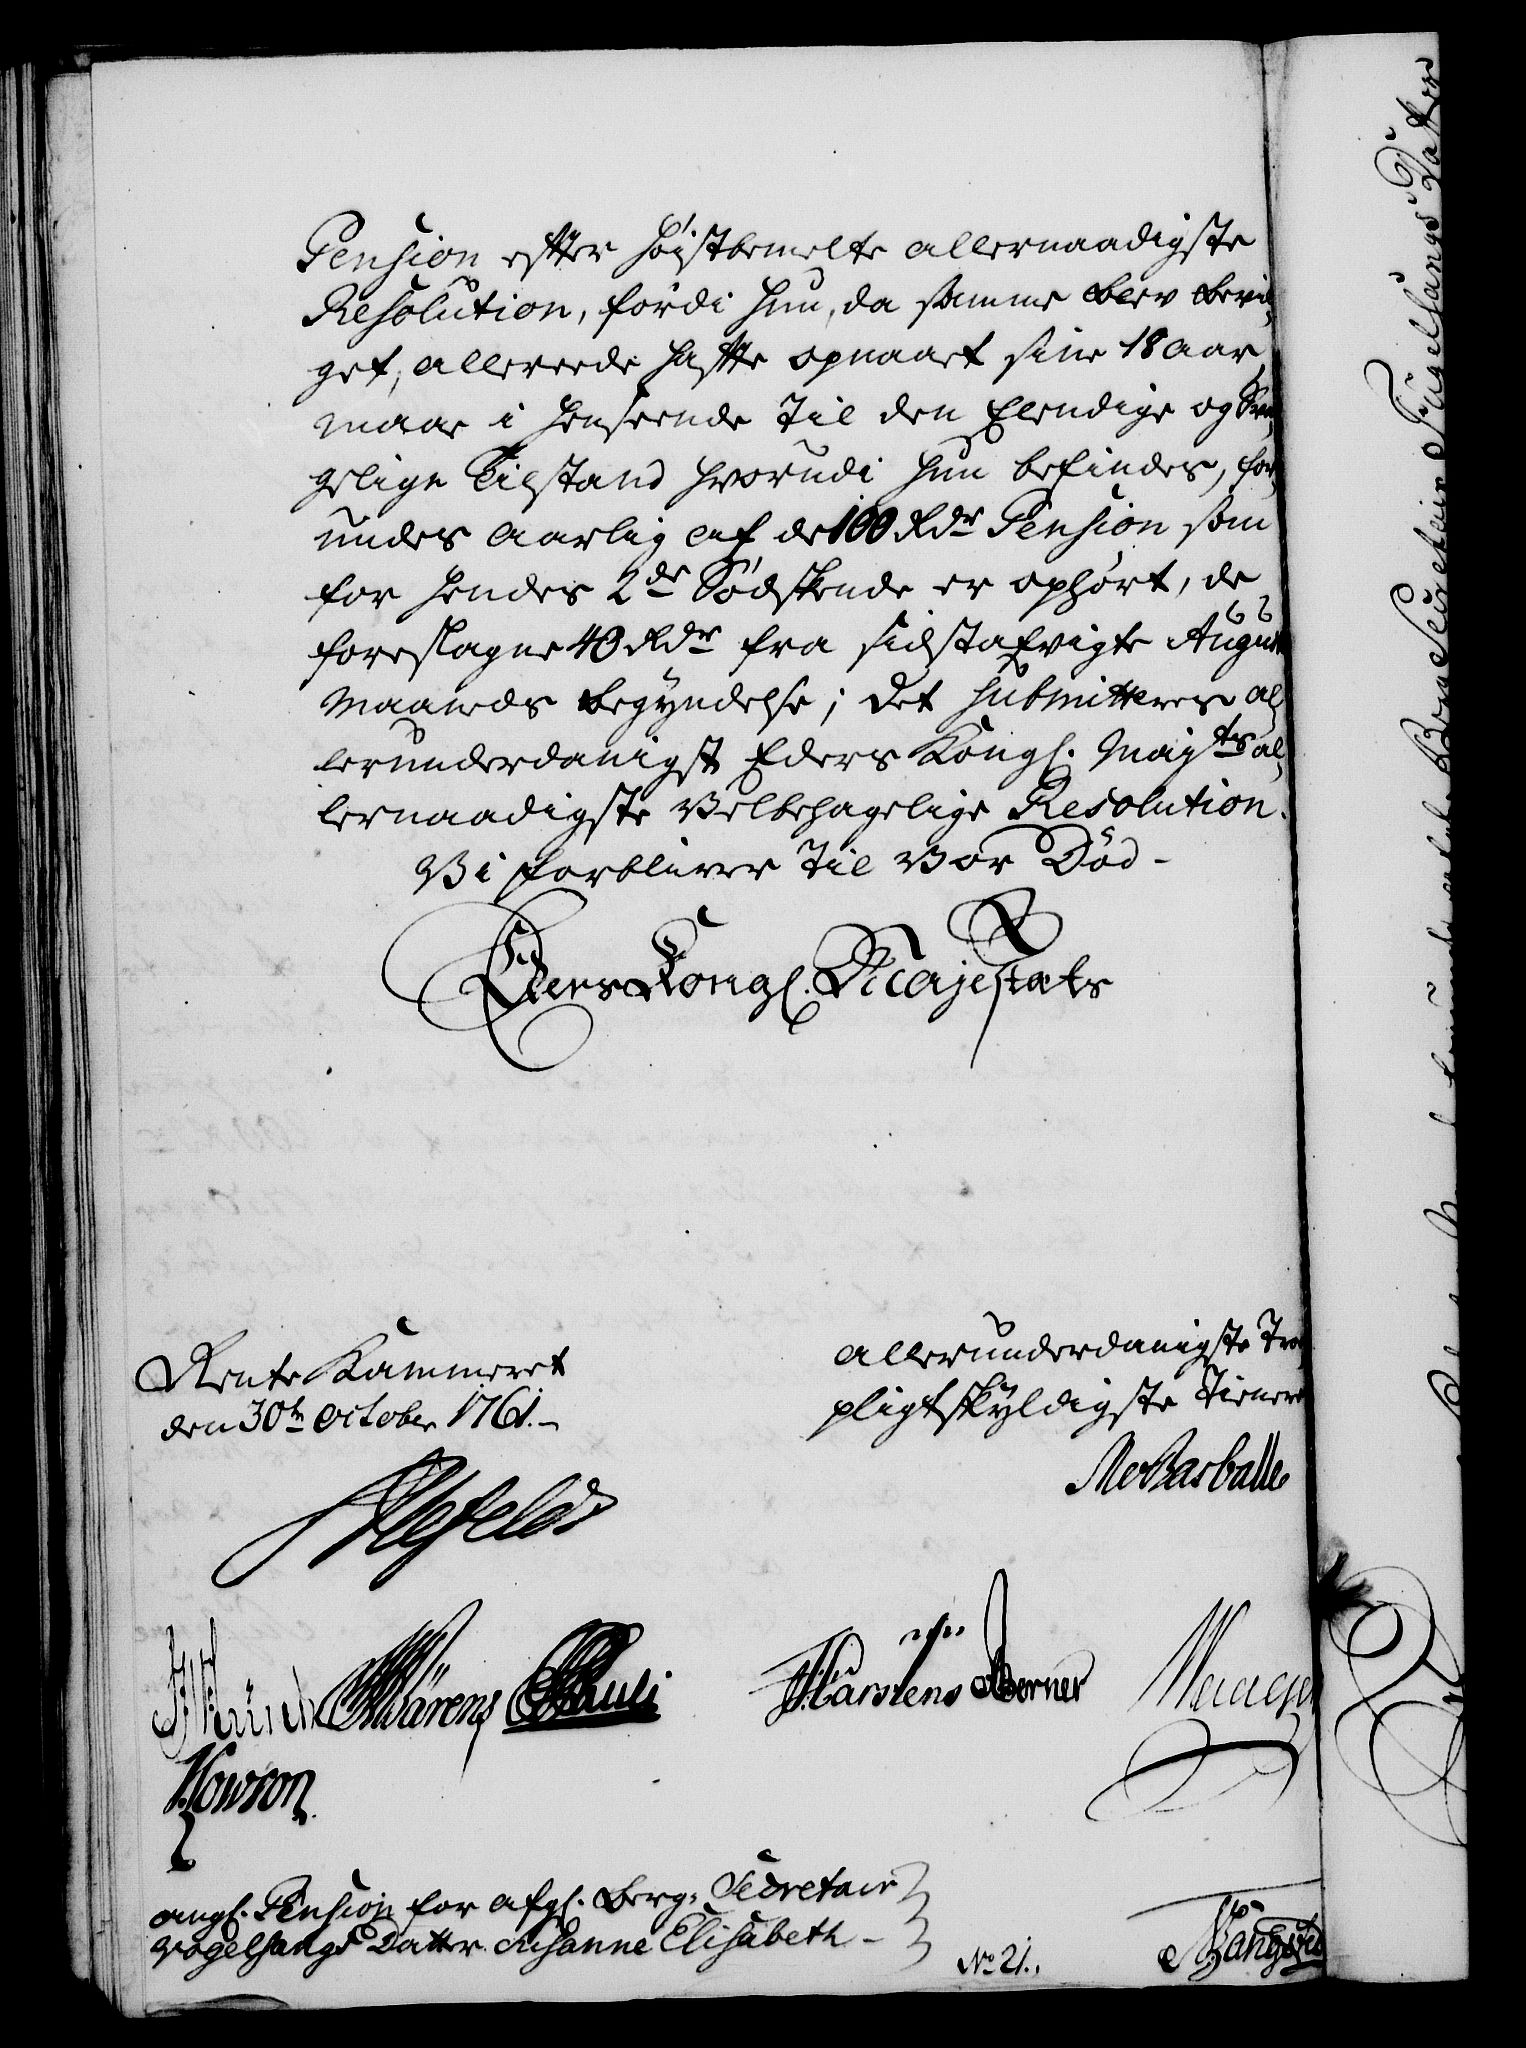 Pension efter høistbemelte allernaadigste
Resolution, fordi hun, da samme blev bevil,
get, allereede hafte opnaaet sine 18 aar,
maae i henseende til den Elendige og Svag,
gelige Tilstand hvorudi hun befindes, for,
undes aarlig af de 100 Rdr Pension som
for hendes 2de Sødskende er ophørt, de
foreslagne 40 Rdr fra sidstafvigte Augusti
Maaneds begyndelse; Det submitteres al,
lerunderdanigst Eders Kongl. Majts al,
lernaadigste Velbehagelige Resolution.
Vi forbliver til Vor Død -
Eders Kongl. Majestæts
Rente Kammeret
den 30te October 1761.
allerunderdanigste Troe
pligtskyldigste Tienere
Ahlefeldt
Wärens Pauli
Karstens Berner
Howson
angl. Pension for afgl. Berg. Secretair
Vogelsangs Datter Susanne Elisabeth -
No 21.